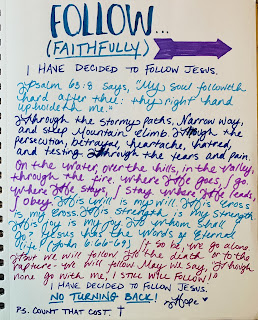 FOLLOW...
(FAITHFULLY)
I HAVE DECIDED TO FOLLOW JESUS.
Psalm 63:8 says, "My soul followeth
hard after thee: thy right hand
upholdeth me."
Through the stormy paths, Narrow way,
and steep Mountain climb. Through the
persecution, betrayal, heartache, hatred,
and testing. Through the tears and pain.
On the water, over the hills, in the valley,
through the fire where He goes, I go.
Where He stays, I stay where He leads,
I obey. His will is my will. His Cross
is my Cross. His strength is my strength
His joy is my joy. To whom shall
I go? Jesus has the words of eternal
life! (John 6:66-69) If so be, we go alone,
but we will follow to the death or to the
rapture - we will follow. May we say, "Though
none go with me, I STILL WILL FOLLOW!"
I HAVE DECIDED TO FOLLOW JESUS.
NO TURNING BACK!
Hope
PS. COUNT THAT COST.